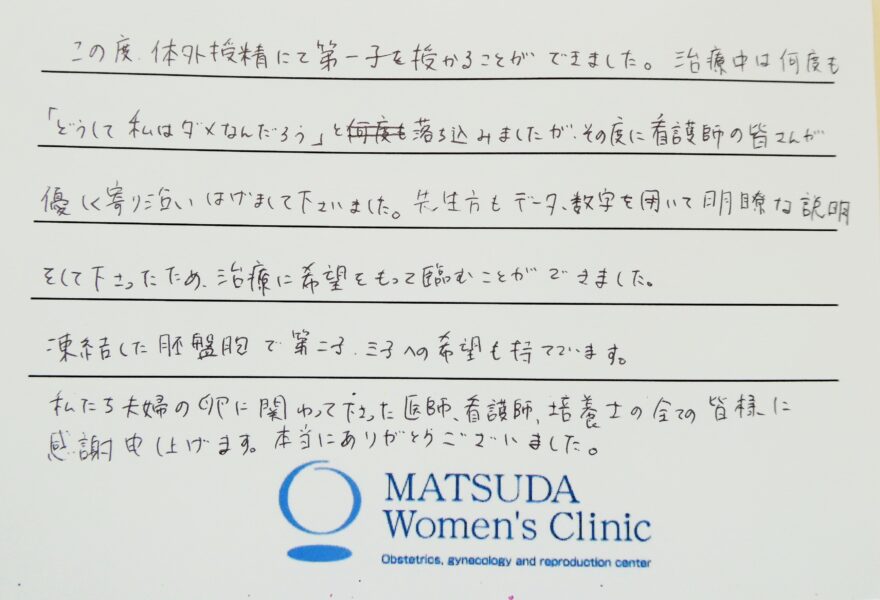 この度、体外授精にて第一子を授かることができました。治療中は何度も
「どうして私はダメなんだろう」と何度も落ち込みましたが、その度に看護師の皆さんが
優しく寄り沿いはげまして下さいました。先生方もデータ、数字を用いて明瞭な説明
をして下さったため、治療に希望をもって臨むことができました。
凍結した胚盤胞で第二子、三子への希望も持てています。
私たち夫婦の卵に関わって下さった医師、看護師、培養士の全ての皆様に
感謝申し上げます。本当にありがとうございました。
MATSUDA
Women's Clinic
Obstetrics, gynecology and reproduction center